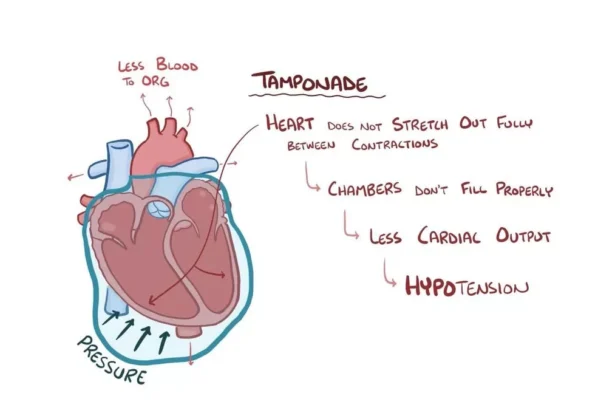 LESS BLOOD
TO ORG
TAMPONADE
HEART DOES NOT STRETCH OUT FULLY
BETWEEN CONTRACTIONS
CHAMBERS DON'T FILL PROPERLY
LESS CARDIAC OUTPUT
HYPOTENSION
PRESSURE